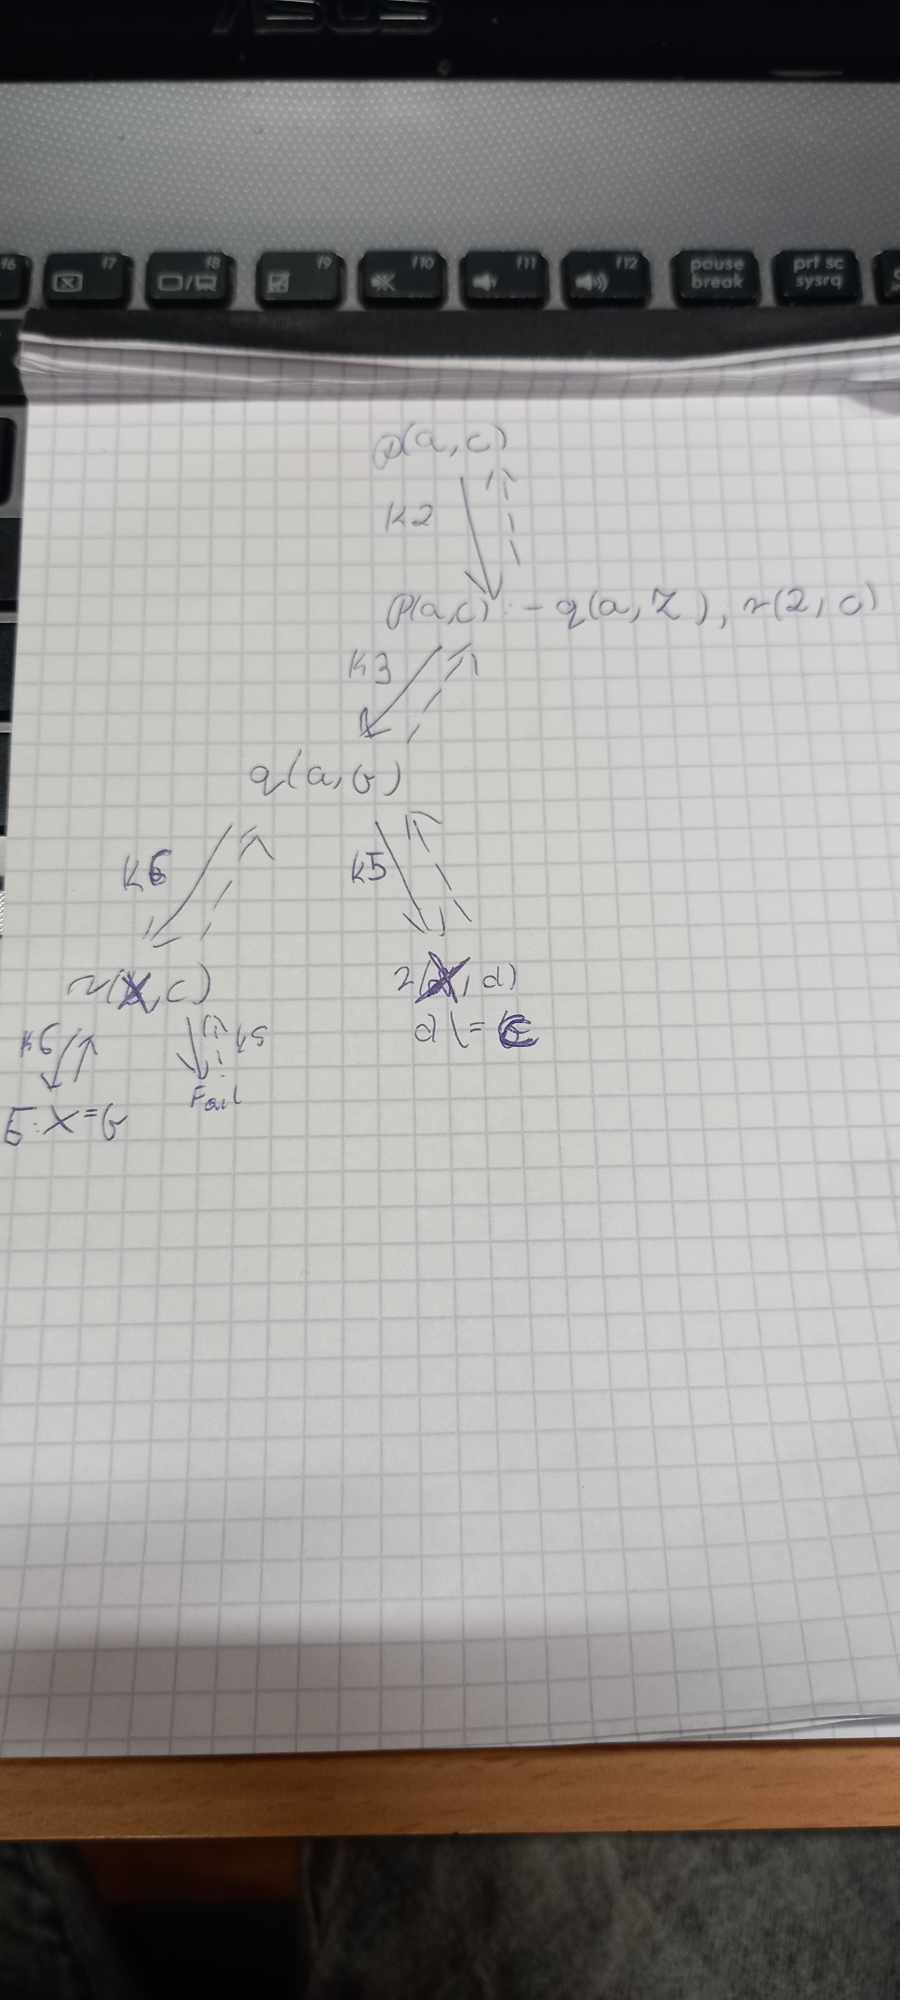 ASUS
f6 f7 f8 f9 f10 f11 f12 pause break prt sc sysrq
p(a,c)
K2
p(a,c) :- q(a,Z), r(Z,c)
K3
q(a,b)
K6 K5
r(X,c) r(X,d)
K6 K5 d\=c
Fail
E: X=b